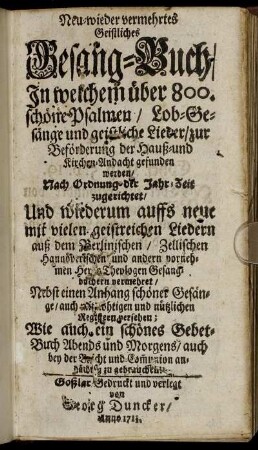 Neu-wieder vermehrtes
Geistliches
Gesang-Buch/
In welchem über 800.
schöne Psalmen / Lob-Ge-
sänge und geistliche Lieder/zur
Beförderung der Hauß-und
Kirchen-Andacht gefunden
werden/
Nach Ordnung der Jahr-Zeit
zugerichtet/
Und wiederum auffs neue
mit vielen geistreichen Liedern
auß dem Berlinischen / Zellischen
Hannöverischen und andern vorneh-
men Herrn Theologen Gesang-
büchern vermehret /
Nebst einen Anhang schöner Gesän-
ge/auch nöhtigen und nützlichen
Registern versehen;
Wie auch ein schönes Gebet-
Buch Abends und Morgens/auch
bey der Beicht und Communion an-
dächtig zu gebrauchen.
Goßlar/Gedruckt und verlegt
von
Georg Duncker/
Anno